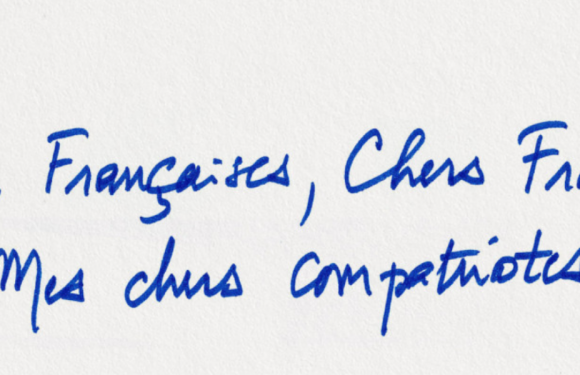 Françaises, Chers Fra
Mes chers compatriotes